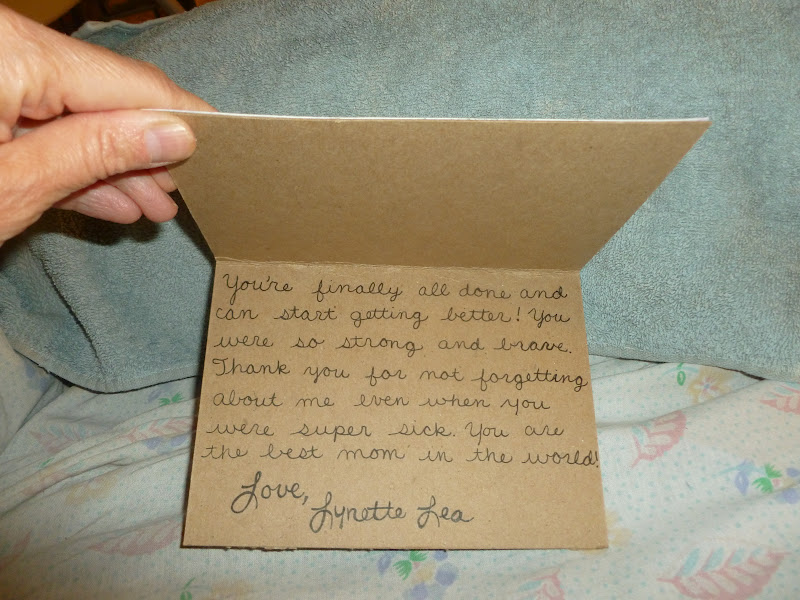 You're finally all done and
can start getting better! You
were so strong and brave.
Thank you for not forgetting
about me even when you
were super sick. You are
the best mom in the world!
Love,
Lynette Lea